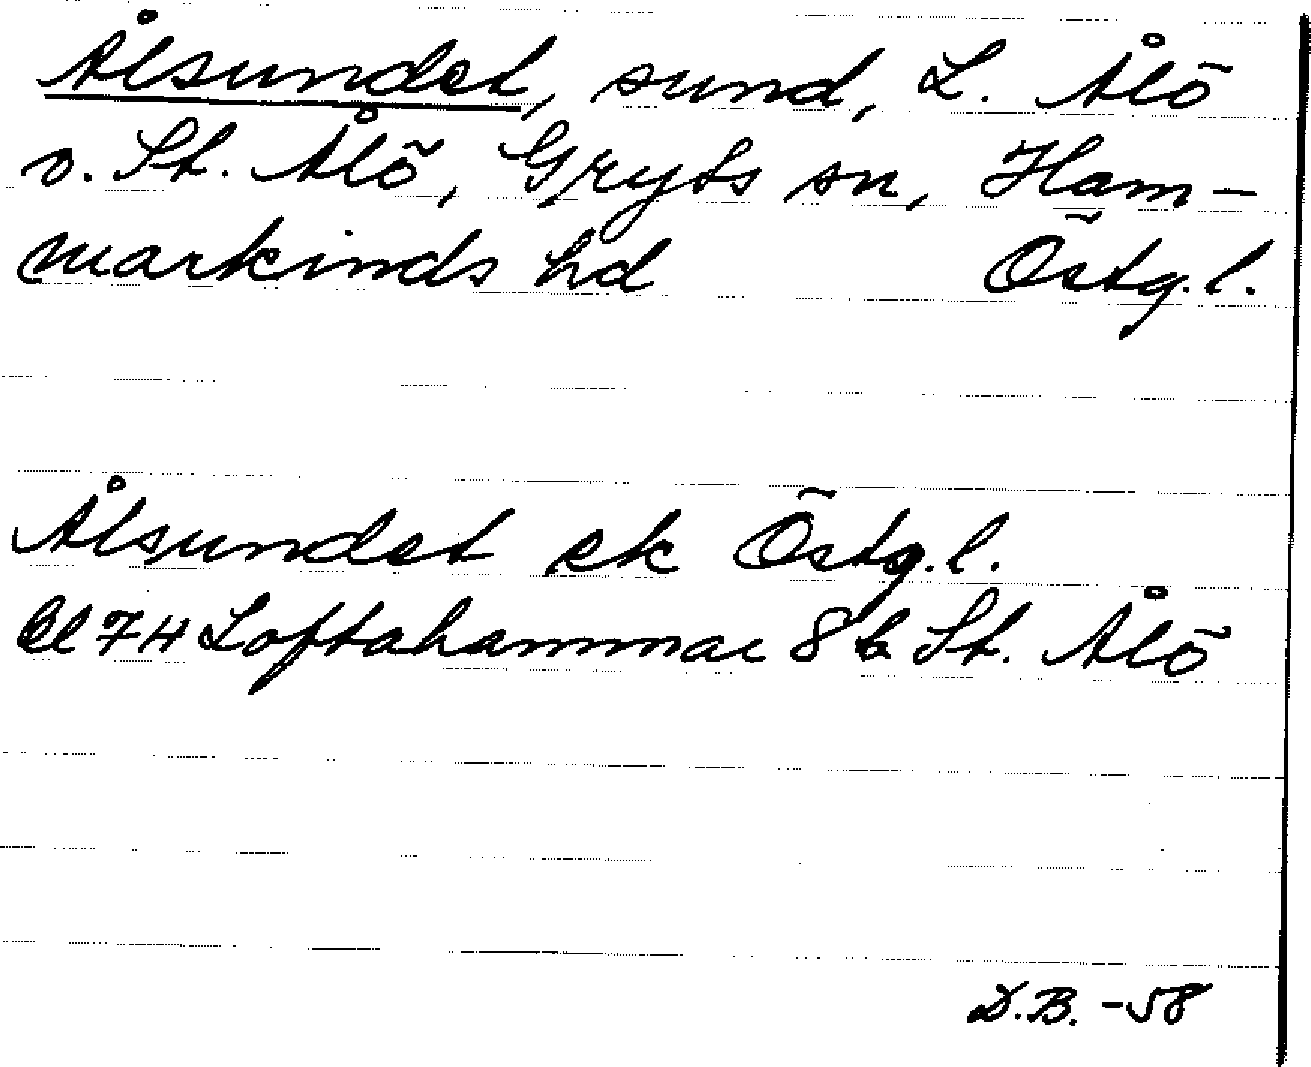 Ålsundet, sund, L. Ålö
o. St. Ålö, Gryts sn, Ham-
markinds hd Östg.l.
Ålsundet ek Östg.l.
bl 74 Loftahammar 8 b St. Ålö
D.B. -58